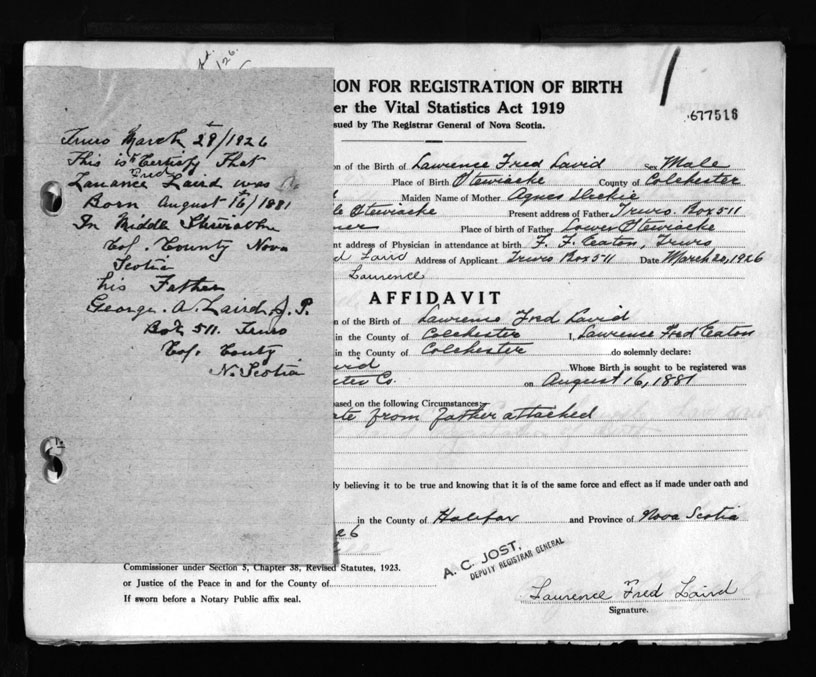 Truro March 29/1926
This is to Certify That
Fred
Laurance Laird was
Born August 16/1881
In Middle
Col. County Nova
Scotia
his Father
George. A. Laird J. P.
Box 511. Truro
Col. County
N. Scotia
ION FOR REGISTRATION OF BIRTH
er the Vital Statistics Act 1919
sued by The Registrar General of Nova Scotia.
677516
on of the Birth of Lawrence Fred Lavid Sex Male
Place of Birth Stewiacke County of Colchester
Maiden Name of Mother Agnes
le Stewiacke Present address of Father Truro. Box 511
mer Place of birth of Father Lower Stewiacke
nt address of Physician in attendance at birth F. F. Eaton, Truro
d Laird Address of Applicant Truro Box 511 Date March 20, 1926
Laurence
AFFIDAVIT
n of the Birth of Lawrence Fred Lavid
in the County of Colchester I, Lawrence Fred Eaton
in the County of Colchester do solemnly declare:
vid Whose Birth is sought to be registered was
ster Co. on August 16, 1881
based on the following Circumstances:
ate from father attached
ly believing it to be true and knowing that it is of the same force and effect as if made under oath and
in the County of Halifax and Province of Nova Scotia
26
Commissioner under Section 3, Chapter 38, Revised Statutes, 1923.
or Justice of the Peace in and for the County of
If sworn before a Notary Public affix seal.
A. C. JOST,
DEPUTY REGISTRAR GENERAL
Laurence Fred Laird
Signature.